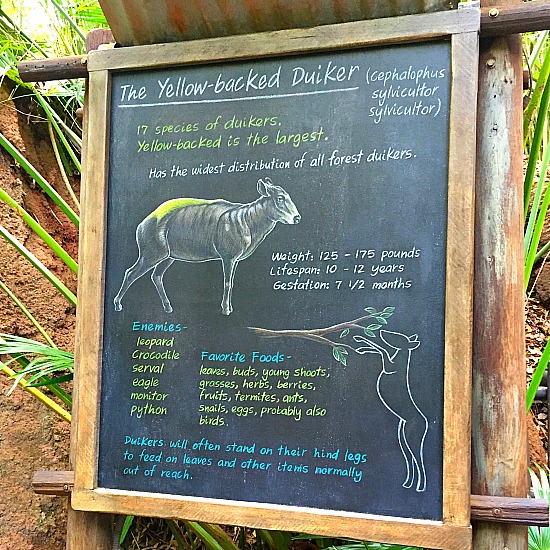 The Yellow-backed Duiker (cephalophus
sylvicultor
sylvicultor)
17 species of duikers.
Yellow-backed is the largest.
Has the widest distribution of all forest duikers.
Weight: 125 - 175 pounds
Lifespan: 10 - 12 years
Gestation: 7 1/2 months
Enemies-
leopard
Crocodile
serval
eagle
monitor
python
Favorite Foods-
leaves, buds, young shoots,
grasses, herbs, berries,
fruits, termites, ants,
snails, eggs, probably also
birds.
Duikers will often stand on their hind legs
to feed on leaves and other items normally
out of reach.